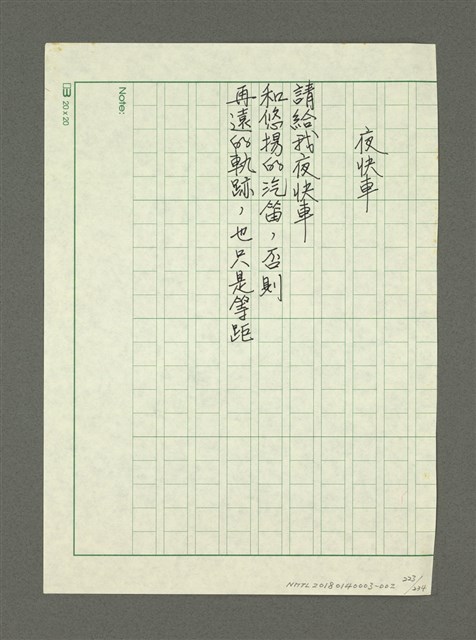 夜快車
請給我夜快車
和悠揚的汽笛，否則
再遠的軌跡，也只是等距
Note:
20×20
NMTL20180140003-002
223/234